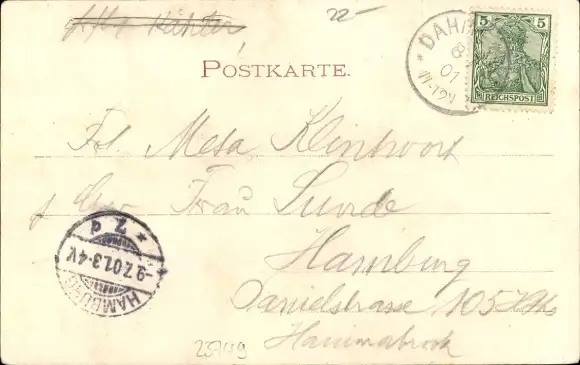 22-
POSTKARTE.
DAH
8
01
11-12V
5 5
REICHSPOST
Frl. Meta Klintwort
Frau Lunde
Hamburg
Danielstrasse 105
Hammabrook
HAMBURG
9.7.01.3-4V.
* 2 d
23749